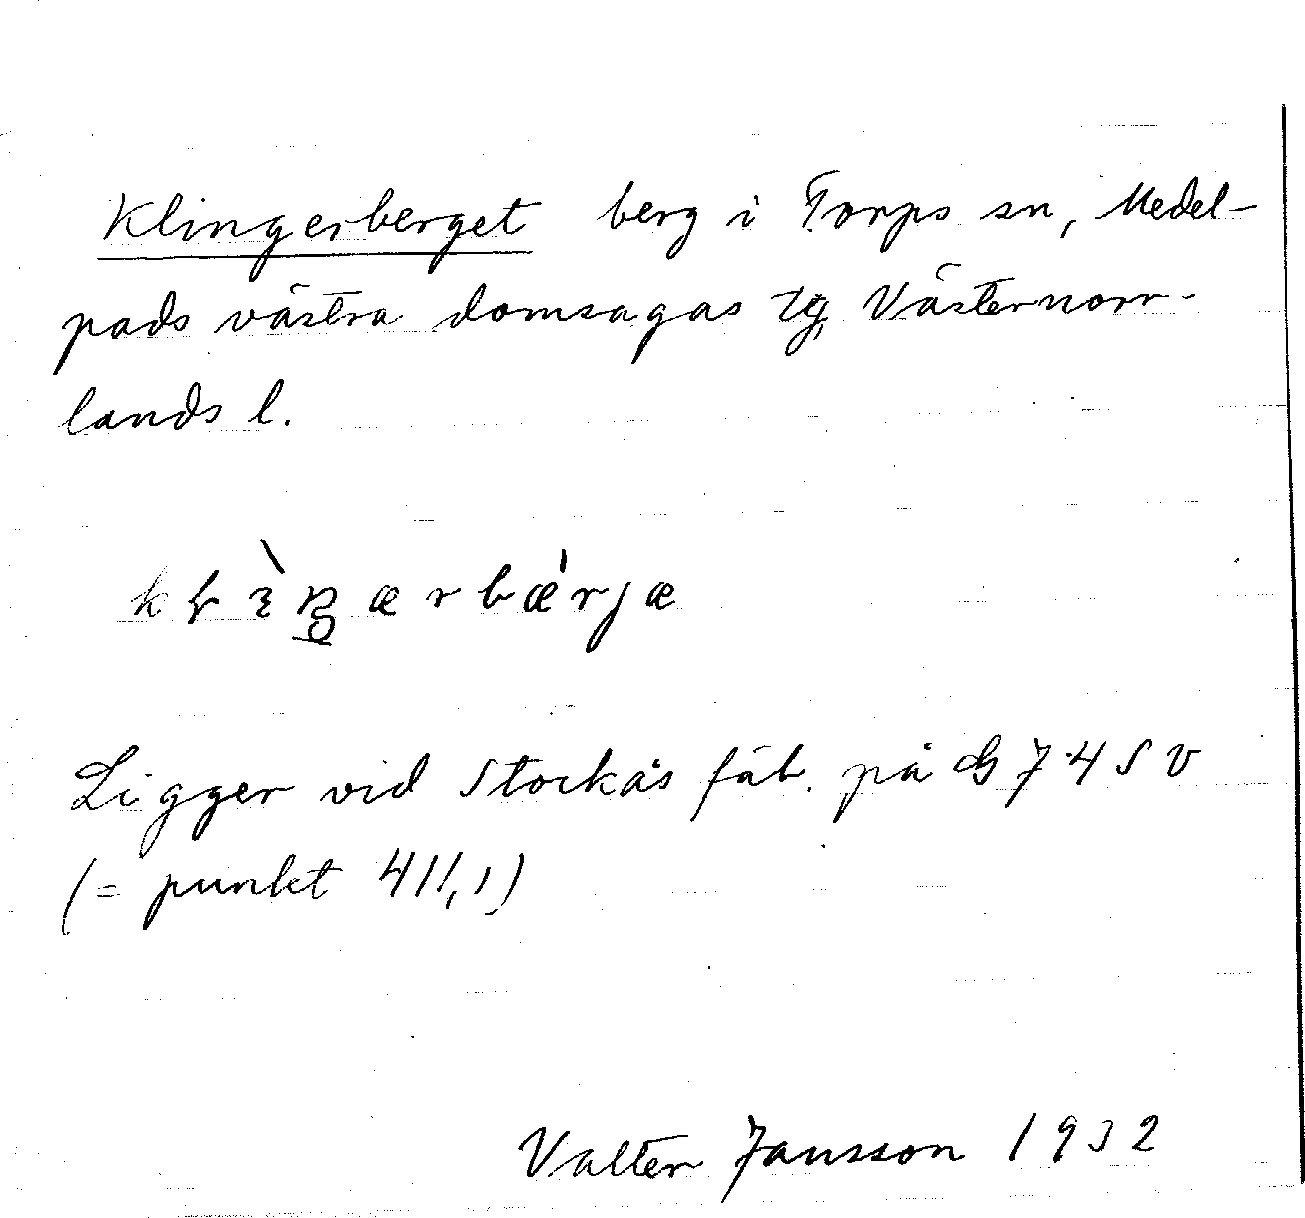 Klingerberget berg i Torps sn, Medel-
pads västra domsagas tg, Västernorr-
lands l.
Ligger vid Stockås fäb. på GS 74 SV
(= punkt 411,1)
Valter Jansson 1932